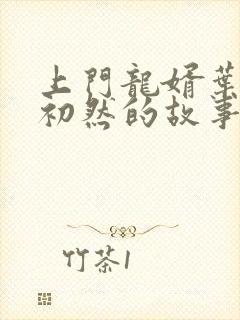 上門龍婿葉
初然的故事
竹茶1